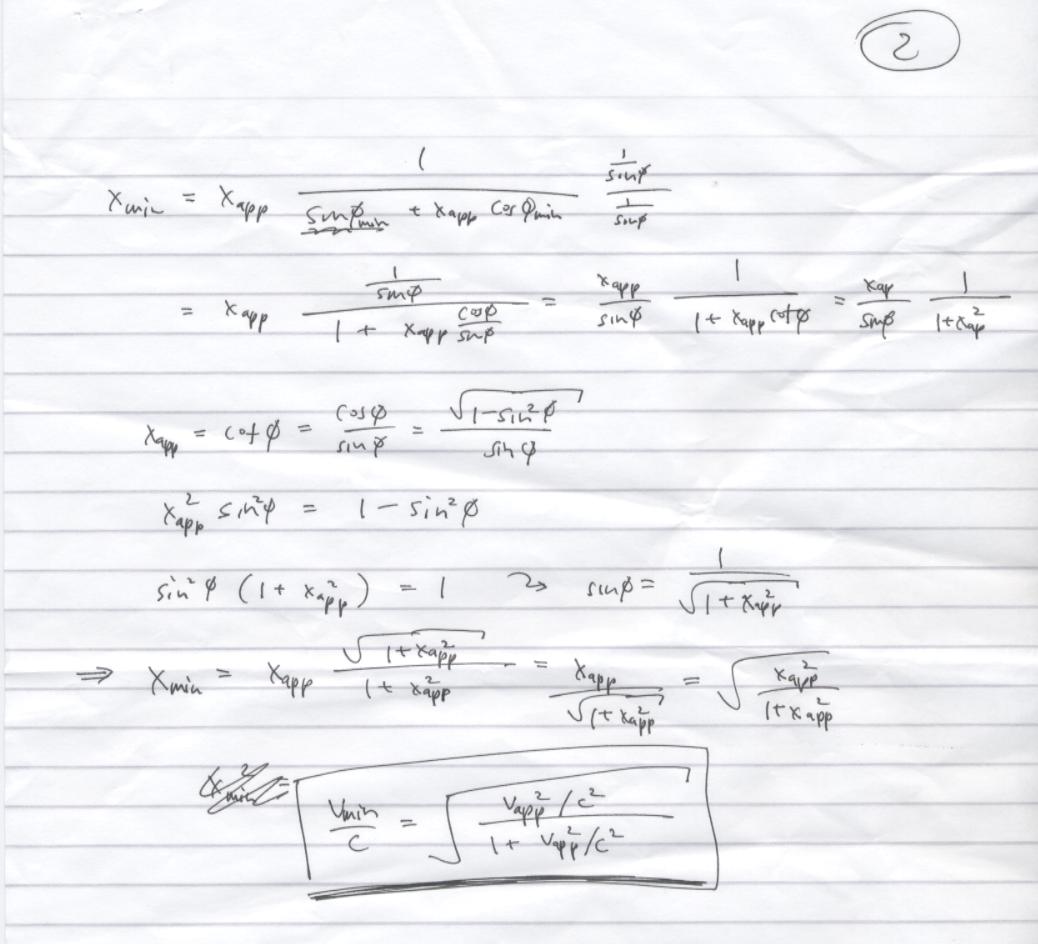 2
x_min = x_app \frac{1}{sinφ_min + x_app cosφ_min} \frac{\frac{1}{sinφ}}{\frac{1}{sinφ}}
= x_app \frac{\frac{1}{sinφ}}{1 + x_app \frac{cosφ}{sinφ}} = \frac{x_app}{sinφ} \frac{1}{1 + x_app cotφ} = \frac{x_ap}{sinφ} \frac{1}{1 + x_ap^2}
x_app = cotφ = \frac{cosφ}{sinφ} = \frac{\sqrt{1 - sin^2φ}}{sinφ}
x_app^2 sin^2φ = 1 - sin^2φ
sin^2φ (1 + x_app^2) = 1 ⤳ sinφ = \frac{1}{\sqrt{1 + x_app^2}}
⇒ x_min = x_app \frac{\sqrt{1 + x_app^2}}{1 + x_app^2} = \frac{x_app}{\sqrt{1 + x_app^2}} = \sqrt{\frac{x_app^2}{1 + x_app^2}}
\frac{v_min}{c} = \sqrt{\frac{v_app^2/c^2}{1 + v_app^2/c^2}}